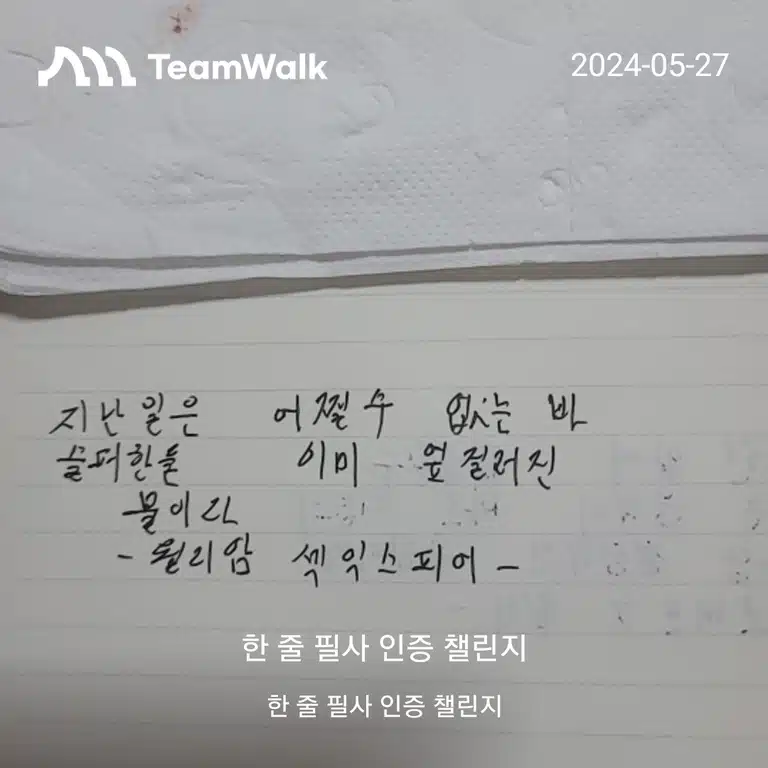 TeamWalk
2024-05-27
지난일은 어쩔수 없는 바
슬퍼한들 이미 엎질러진
물이라
- 윌리암 섹익스피어 -
한 줄 필사 인증 챌린지
한 줄 필사 인증 챌린지